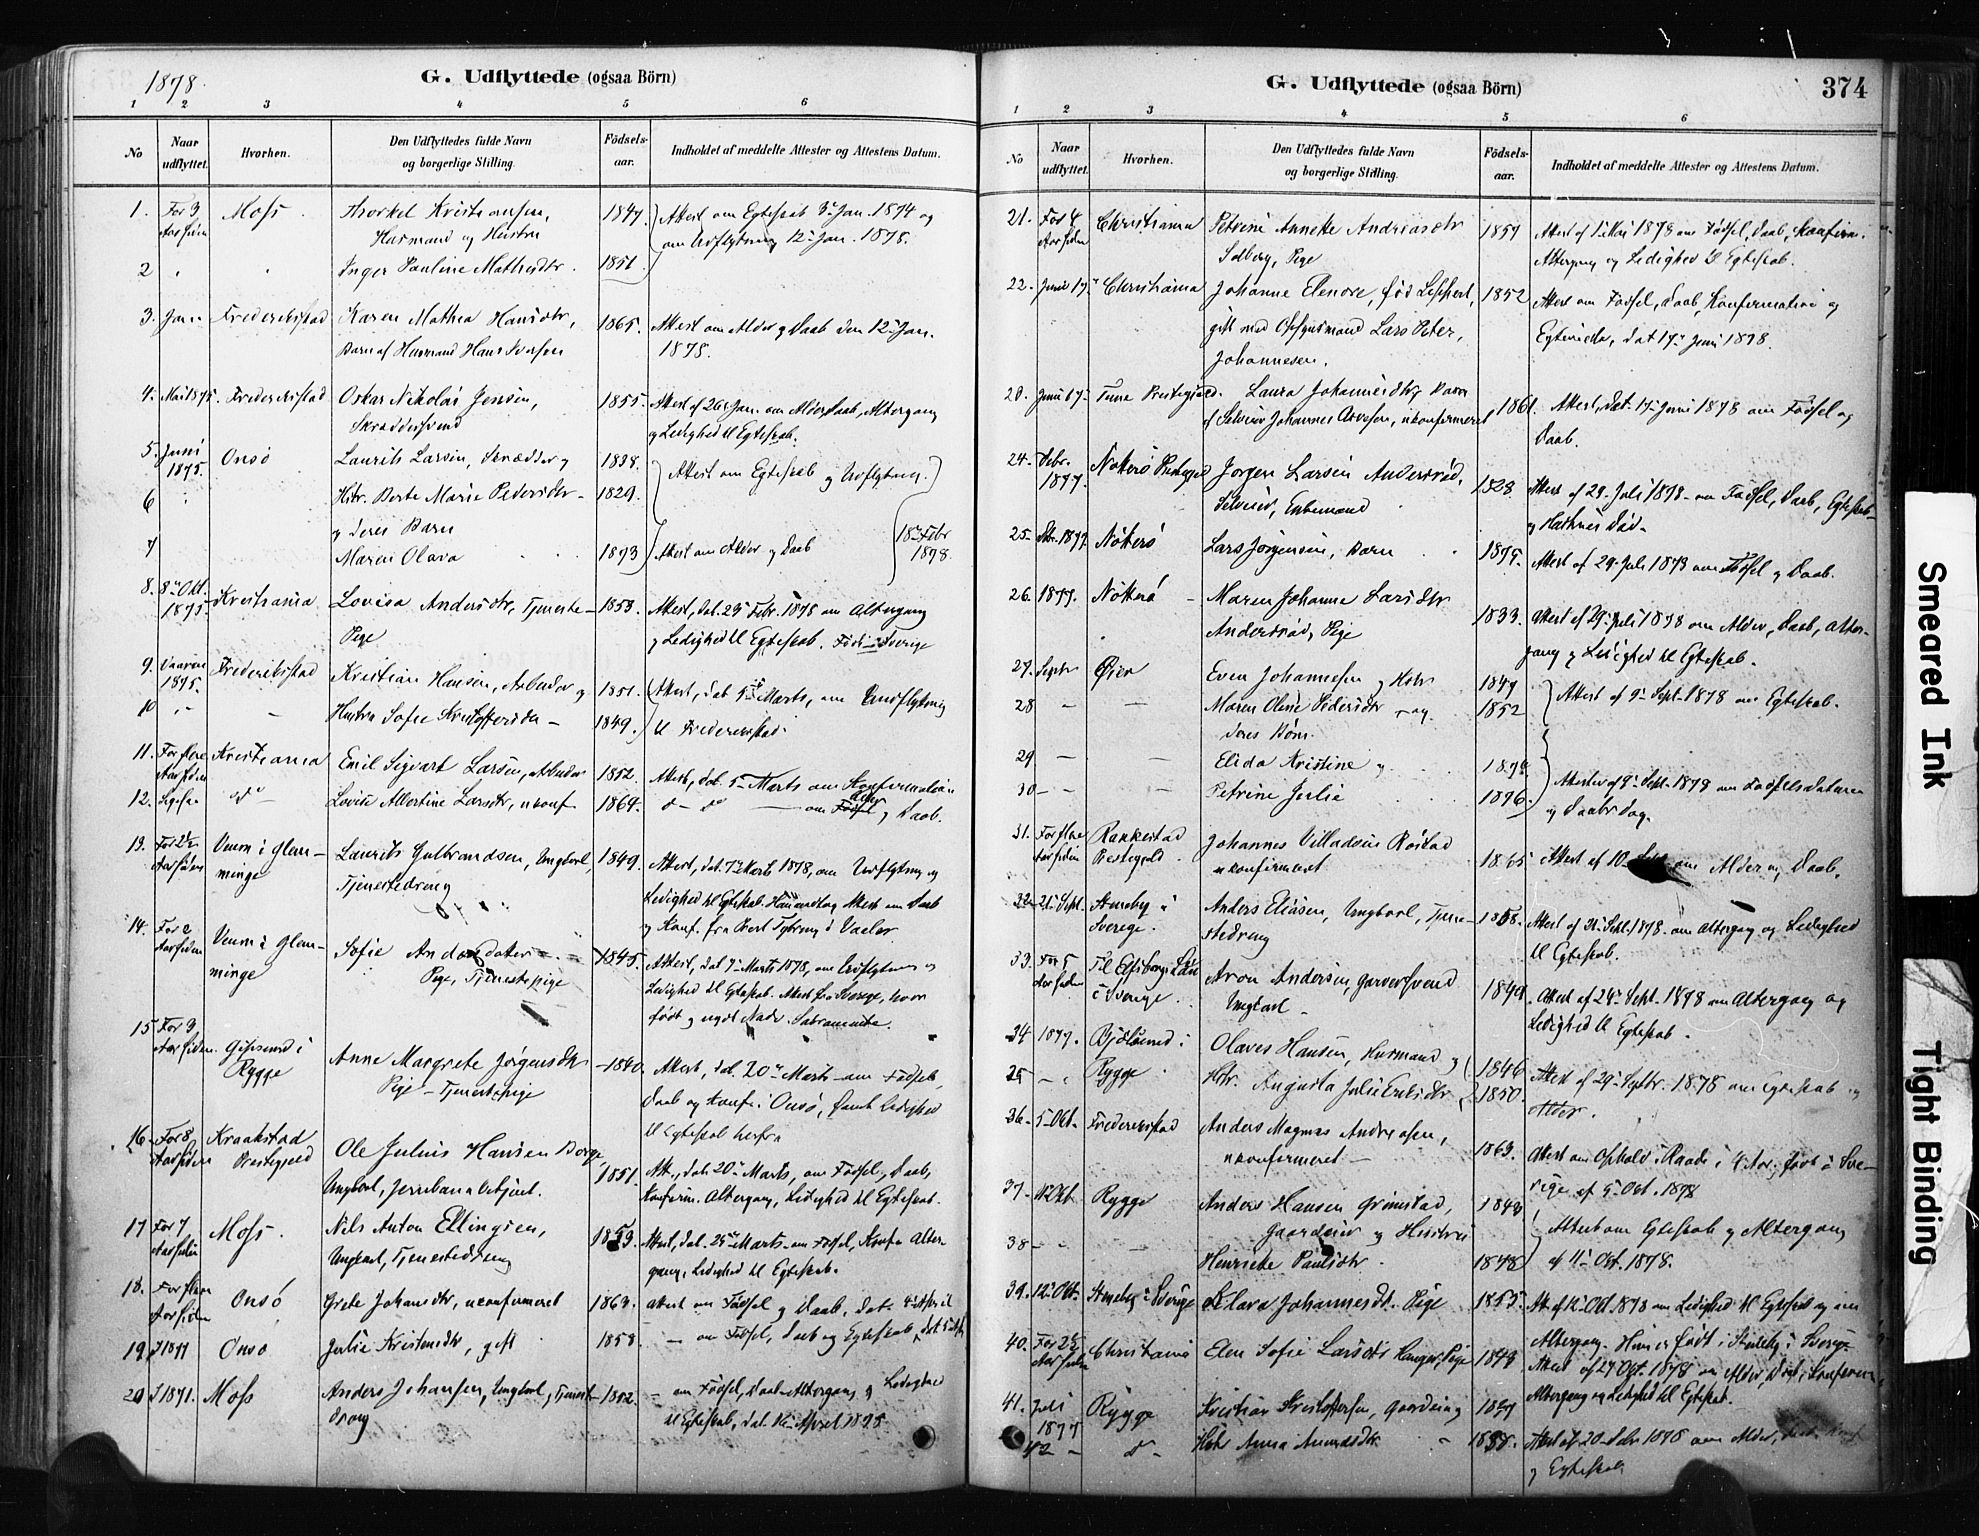 1878.
G. Udflyttede (ogsaa Börn)
1 2 3 4 5 6
No Naar udflyttet. Hvorhen. Den Udflyttedes fulde Navn og borgerlige Stilling. Födsels-aar. Indholdet af meddelte Attester og Attestens Datum.
1. For 3 Moss. Thorkel Kristiansen, 1847. Attest om Egteskab 3die Jan. 1874 og
Aar siden Husmand og Hustru om Udflytning 12te Jan. 1878.
2 Inger Pauline Mathisdtr. 1851
3. Jan. Frederikstad Karen Mathea Hansdtr, 1865. Attest om Alder og Daab den 12te Jan.
Barn af Husmand Hans 1878.
4. Mai 1875. Frederikstad Oskar Nikolai Jensen, 1855. Attest af 26 Jan. om Alder, Daab, Altergang
Skræddersvend og Ledighed til Egteskab.
5. Juni 1875. Onsö Laurits Larsen, Skrædder og 1838. Attest om Egteskab og Udflytning.
6 Hstr. Berte Marie Pedersdtr 1829.
og deres Barn
7 Maren Olava 1873 Attest om Alder og Daab 18de Febr 1878.
8. 8de Okt. 1875 Kristiania Lovisa Andersdtr, Tjeneste- 1853. Attest, dat. 25 Febr. 1878 om Altergang
Pige og Ledighed til Egteskab. Född i Sverige
9. Vaaren 1875. Frederikstad Kristian Hansen, Arbeider og 1851. Attest, dat. 5te Marts, om Udflytning
10 Hustru Sofie Kristoffersdtr 1849. til Frederikstad.
11. For flere Aar siden Kristiania Emil Sigvart Larsen, Arbeider 1852. Attest, dat. 5te Marts om Konfirmation
12. Lovise Albertine Larsdtr, ukonf 1864. om Alder og Daab.
13. For 2½ Aar siden Veum i Glem- Laurits Gulbrandsen, Ungkarl, 1849. Attest, dat. 7de Marts 1878, om Udflytning og
minge Tjenestedreng Ledighed til Egteskab. Attest om Daab
og Konf. fra Præst i Vaaler
14. For 2 Aar siden Veum i Glem- Sofie Andersdatter 1845. Attest, dat. 7de Marts 1878, om Udflytning og
minge Pige, Tjenestepige Ledighed til Egteskab. Attest fra Sverige, hvor
född og nydt Nadv. Sakramente.
15 For 3 Aar siden. i Rygge Anne Margrete Jörgensdtr 1840. Attest, dat. 20de Marts om Födsel,
Pige - Tjenestepige Daab og Konf. i Onsö, samt Ledighed
til Egteskab herfra
16. For 8 Aar siden Kraakstad Ole Julius Hansen Borge, 1851. Att., dat. 20de Marts, om Födsel, Daab,
Prestegjeld Ungkarl, Jernbanebetjent. Konfirm. Altergang, Ledighed til Egteskab.
17 For 7 Aar siden Moss. Nils Anton Ellingsen, 1853. Attest, dat. 25de Marts om Födsel, Konf. Alter-
Ungkarl, Tjenestedreng gang, Ledighed til Egteskab.
18. For flere Aar siden Onsö Grete Johansdtr, ukonfirmeret 1863. Attest om Födsel og Daab, dat. 4de April
19 I 1877 Onsö Julie Kristensdtr, gift 1858. om Födsel, Daab og Egteskab
20 I 1871. Moss Anders Johansen, Ungkarl, Tjeneste- 1852. om Födsel, Daab, Altergang og Ledighed
dreng til Egteskab, dat. April 1878
G. Udflyttede (ogsaa Börn) 374
1 2 3 4 5 6
No Naar udflyttet. Hvorhen. Den Udflyttedes fulde Navn og borgerlige Stilling. Födsels-aar. Indholdet af meddelte Attester og Attestens Datum.
21. For 4 Aar siden Christiania Petrine Annette Andreasdtr 1857 Attest af 1ste Mai 1878 om Födsel, Daab, Konfirm.
Solberg, Pige Altergang og Ledighed til Egteskab.
22. Juni 17. Christiania Johanne Elenore, föd Leppert, 1852 Attest om Födsel, Daab, Konfirmation og
gift med Opsynsmand Lars Peter, Egtevielse, dat 17de Juni 1878.
Johannesen.
Juni 17. Tune Prestegjeld. Laura Johannesdtr, Barn 1861. Attest, dat. 17de Juni 1878 om Födsel og
af Selveier Johannes, ukonfirmeret Daab.
24. Debr. 1877 Nøtterø Prestegjeld Jørgen Larsen Andersröd, 1828. Attest af 29 Juli 1878 om Födsel, Daab, Egteskab
Selveier, Enkemand og Död.
25. Dbr. 1877. Nøtterö Lars Jörgensen, Barn 1875. Attest af 29 Juli 1878 om Födsel og Daab.
26. 1877. Nøtterö Maren Johanne Larsdtr 1833. Attest af 29 Juli 1878 om Alder, Daab, Alter-
Andersröd, Pige gang og Ledighed til Egteskab.
27. Septr Öier Even Johannesen og Hstr 1847 Attest af 9de Sept. 1878 om Egteskab.
28 Maren Oline Pedersdtr og 1852
deres Börn.
29 Elida Kristine og Attester af 9de Sept. 1878 om Födselsdatum
30 Petrine Julie 1876 og Daabsdag.
31. For flere Aar siden Rakkestad Johannes Villadsen Röstad 1865 Attest af 10 Sept om Alder og Daab.
Prestegjeld. ukonfirmeret
32. 21 Sept. Steneby i Anders Eliasen, Ungkarl, Tjene- 1858. Attest af 21 Sept. 1878. om Altergang og Ledighed
Sverige. stedreng til Egteskab.
33. For 5 Aar siden Til Elfsborgs Län Aron Andersen, Garversvend 1849. Attest af 24 Sept. 1878 om Altergang og
i Sverige. Ungkarl Ledighed til Egteskab.
34 1877. i Olaves Hansen, Husmand og 1846 Attest af 29 Septbr. 1878 om Egteskab og
35 Rygge Hstr. Augusta Julie Eriksdtr 1850. Alder.
36 5 Okt. Frederikstad Anders Magnus Andreasen, 1863. Attest om Ophold i Raade i 4 Aar; född i Sve-
ukonfirmeret rige af 5 Okt. 1878
37 Okt Rygge Anders Hansen Grimstad, Attest om Egteskab og Altergang
Gaardeier og Hustru
38 Henriette Paulsdtr. af 11 Okt. 1878.
39. 12 Okt. Steneby i Sverige Klara Johannesdtr. Pige 1855. Att. af 12 Okt 1878 om Ledighed til Egteskab og om
Altergang. Hun er född i Steneby i Sverige
40. For 2½ Aar siden Christiania Elen Sofie Larsdtr Pige Attest af 27 Okt. 1878 om Alder, Daab, Konfirm.
Altergang og Ledighed til Egteskab.
41. Juli 1877 Rygge Kristian Kristoffersen, Gaardeier og Attest af 20 1878 om Alder,
42 Hstr Anna og Egteskab
Smeared Ink
Tight Binding